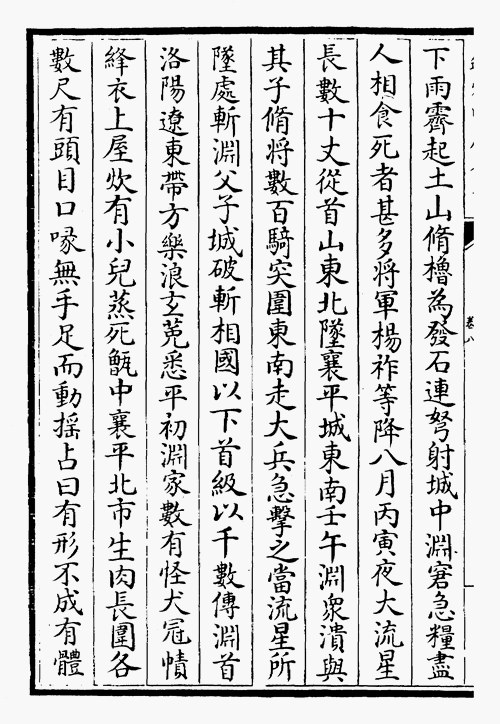 下雨霽起土山脩櫓為發石連弩射城中淵窘急糧盡
人相食死者甚多將軍楊祚等降八月丙寅夜大流星
長數十丈從首山東北墜襄平城東南壬午淵衆潰與
其子脩將數百騎突圍東南走大兵急擊之當流星所
墜處斬淵父子城破斬相國以下首級以千數傳淵首
洛陽遼東帶方樂浪玄菟悉平初淵家數有怪犬冠幘
絳衣上屋炊有小兒蒸死甑中襄平北市生肉長圍各
數尺有頭目口喙無手足而動搖占曰有形不成有體
卷八